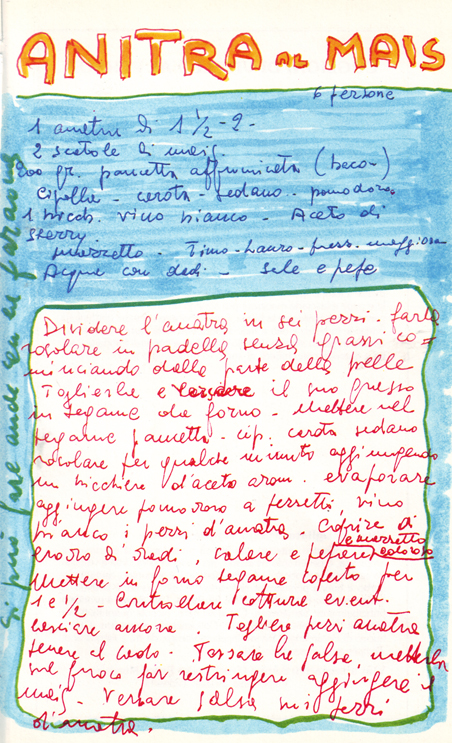 ANITRA AL MAIS
6 persone
1 anatra di 1 1/2 - 2 -
2 scatole di mais.
200 gr. pancetta affumicata (beco-)
Cipolla - carota - sedano - pomodoro.
1 bicch. vino bianco - Aceto di
Sherry
mazzetto - Timo - Lauro - prezz. maggiora
Acqua con dadi - sale e pepe
Si può fare anche con la faraona
Dividere l'anatra in sei pezzi - farla
rosolare in padella senza grassi co=
minciando dalla parte della pelle
Toglierla e lasciare il suo grasso
in tegame da forno - Mettere nel
tegame pancetta - cip. carota sedano
rosolare per qualche minuto aggiungendo
un bicchiere d'aceto arom. evaporare
aggingere pomodoro a pezzetti, vino
bianco i pezzi d'anatra. Coprire di
e mazzetto
brodo di dadi, salare e pepare odoroso
Mettere in forno tegame coperto per
1 e 1/2 - Controllare cottura event.
lasciare ancora. Togliere pezzi anatra
tenere al caldo - Passare la salsa, metterla
sul fuoco far restringere aggingere il
mais - Versare salsa sui pezzi
d'anatra.